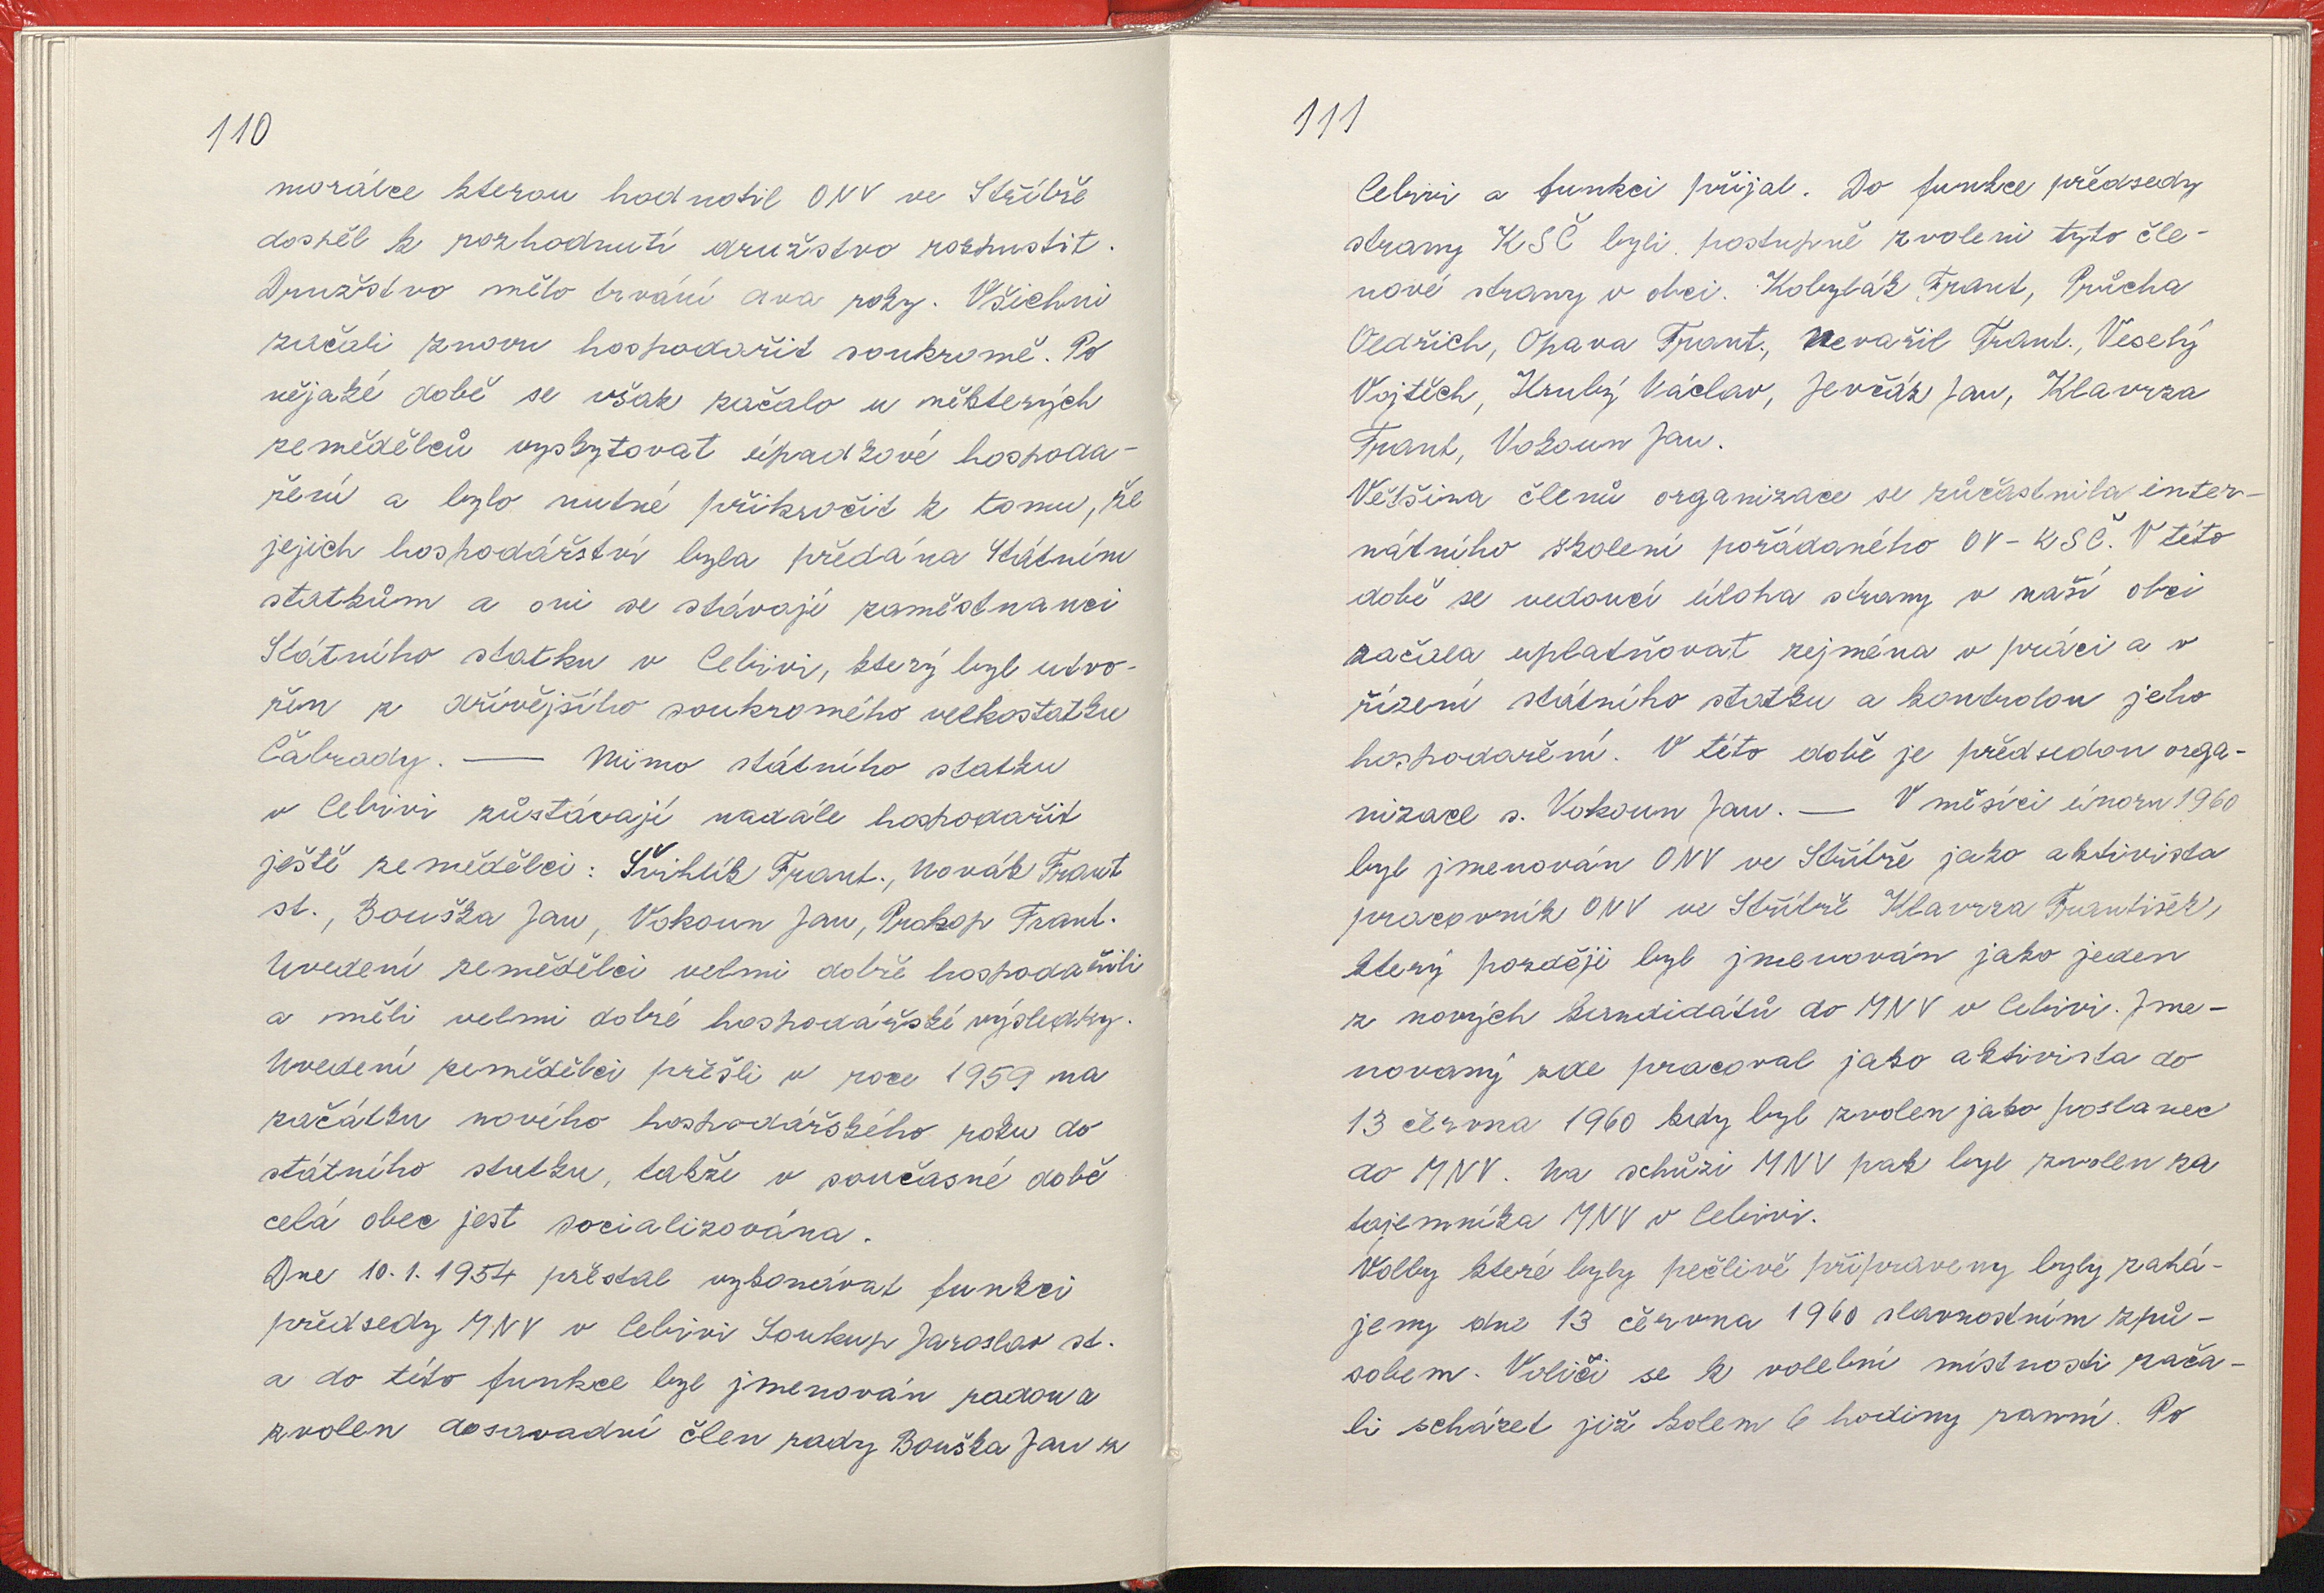 110
morálce kterou hodnotil ONV ve Stříbře
dospěl k rozhodnutí družstvo rozpustit.
Družstvo mělo trvání dva roky. Všichni
začali znovu hospodařit soukromě. Po
nějaké době se však začalo u některých
zemědělců vyskytovat úpadkové hospoda-
ření a bylo nutné přikročit k tomu, že
jejich hospodářství byla předána Státním
statkům a oni se stávají zaměstnanci
Státního statku v Cebivi, který byl utvo-
řen z dřívějšího soukromého velkostatku
Čabrady. — Mimo státního statku
v Cebivi zůstávají nadále hospodařit
ještě zemědělci: Švihlík Frant., Novák Frant
st., Bouška Jan, Vokoun Jan, Prokop Frant.
Uvedení zemědělci velmi dobře hospodařili
a měli velmi dobré hospodářské výsledky.
Uvedení zemědělci přešli v roce 1959 na
začátku nového hospodářského roku do
státního statku, takže v současné době
celá obec jest socializována.
Dne 10.1.1954 přestal vykonávat funkci
předsedy MNV v Cebivi Soukup Jaroslav st.
a do této funkce byl jmenován radou a
zvolen dosavadní člen rady Bouška Jan z
111
Cebivi a funkci přijal. Do funkce předsedy
strany KSČ byli postupně zvoleni tyto čle-
nové strany v obci. Kobylák Frant, Průcha
Oldřich, Opava Frant., Nevařil Frant., Veselý
Vojtěch, Hrubý Václav, Jevčák Jan, Klavrza
Frant, Vokoun Jan.
Většina členů organizace se zůčastnila inter-
nátního školení pořádaného OV-KSČ. V této
době se vedoucí úloha strany v naší obci
začala uplatňovat zejména v práci a v
řízení státního statku a kontrolou jeho
hospodaření. V této době je předsedou orga-
nizace s. Vokoun Jan. — V měsíci únoru 1960
byl jmenován ONV ve Stříbře jako aktivista
pracovník ONV ve Stříbře Klavrza František,
který později byl jmenován jako jeden
z nových kandidátů do MNV v Cebivi. Jme-
novaný zde pracoval jako aktivista do
13 června 1960 kdy byl zvolen jako poslanec
do MNV. Na schůzi MNV pak byl zvolen za
tajemníka MNV v Cebivi.
Volby které byly pečlivě připraveny byly zahá-
jeny dne 13 června 1960 slavnostním způ-
sobem. Voliči se k volební místnosti zača-
li scházet již kolem 6 hodiny ranní. Po